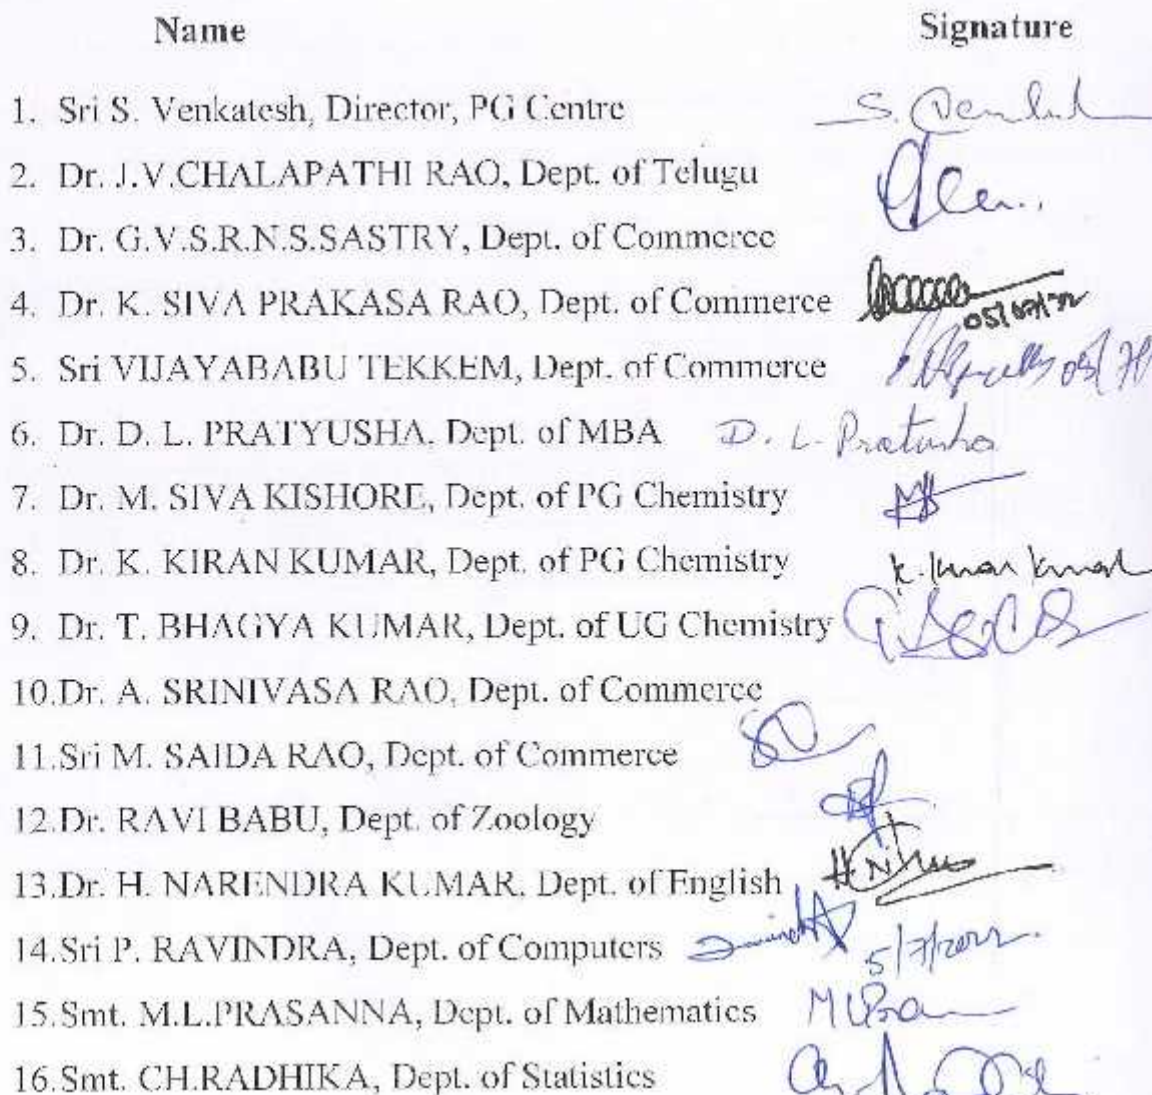 Name Signature
1. Sri S. Venkatesh, Director, PG Centre
2. Dr. J.V.CHALAPATHI RAO, Dept. of Telugu
3. Dr. G.V.S.R.N.S.SASTRY, Dept. of Commerce
4. Dr. K. SIVA PRAKASA RAO, Dept. of Commerce
5. Sri VIJAYABABU TEKKEM, Dept. of Commerce
6. Dr. D. L. PRATYUSHA, Dept. of MBA D. L. Pratusha
7. Dr. M. SIVA KISHORE, Dept. of PG Chemistry
8. Dr. K. KIRAN KUMAR, Dept. of PG Chemistry
9. Dr. T. BHAGYA KUMAR, Dept. of UG Chemistry
10.Dr. A. SRINIVASA RAO, Dept. of Commerce
11.Sri M. SAIDA RAO, Dept. of Commerce
12.Dr. RAVI BABU, Dept. of Zoology
13.Dr. H. NARENDRA KUMAR, Dept. of English
14.Sri P. RAVINDRA, Dept. of Computers 5/7/2022
15.Smt. M.L.PRASANNA, Dept. of Mathematics
16.Smt. CH.RADHIKA, Dept. of Statistics